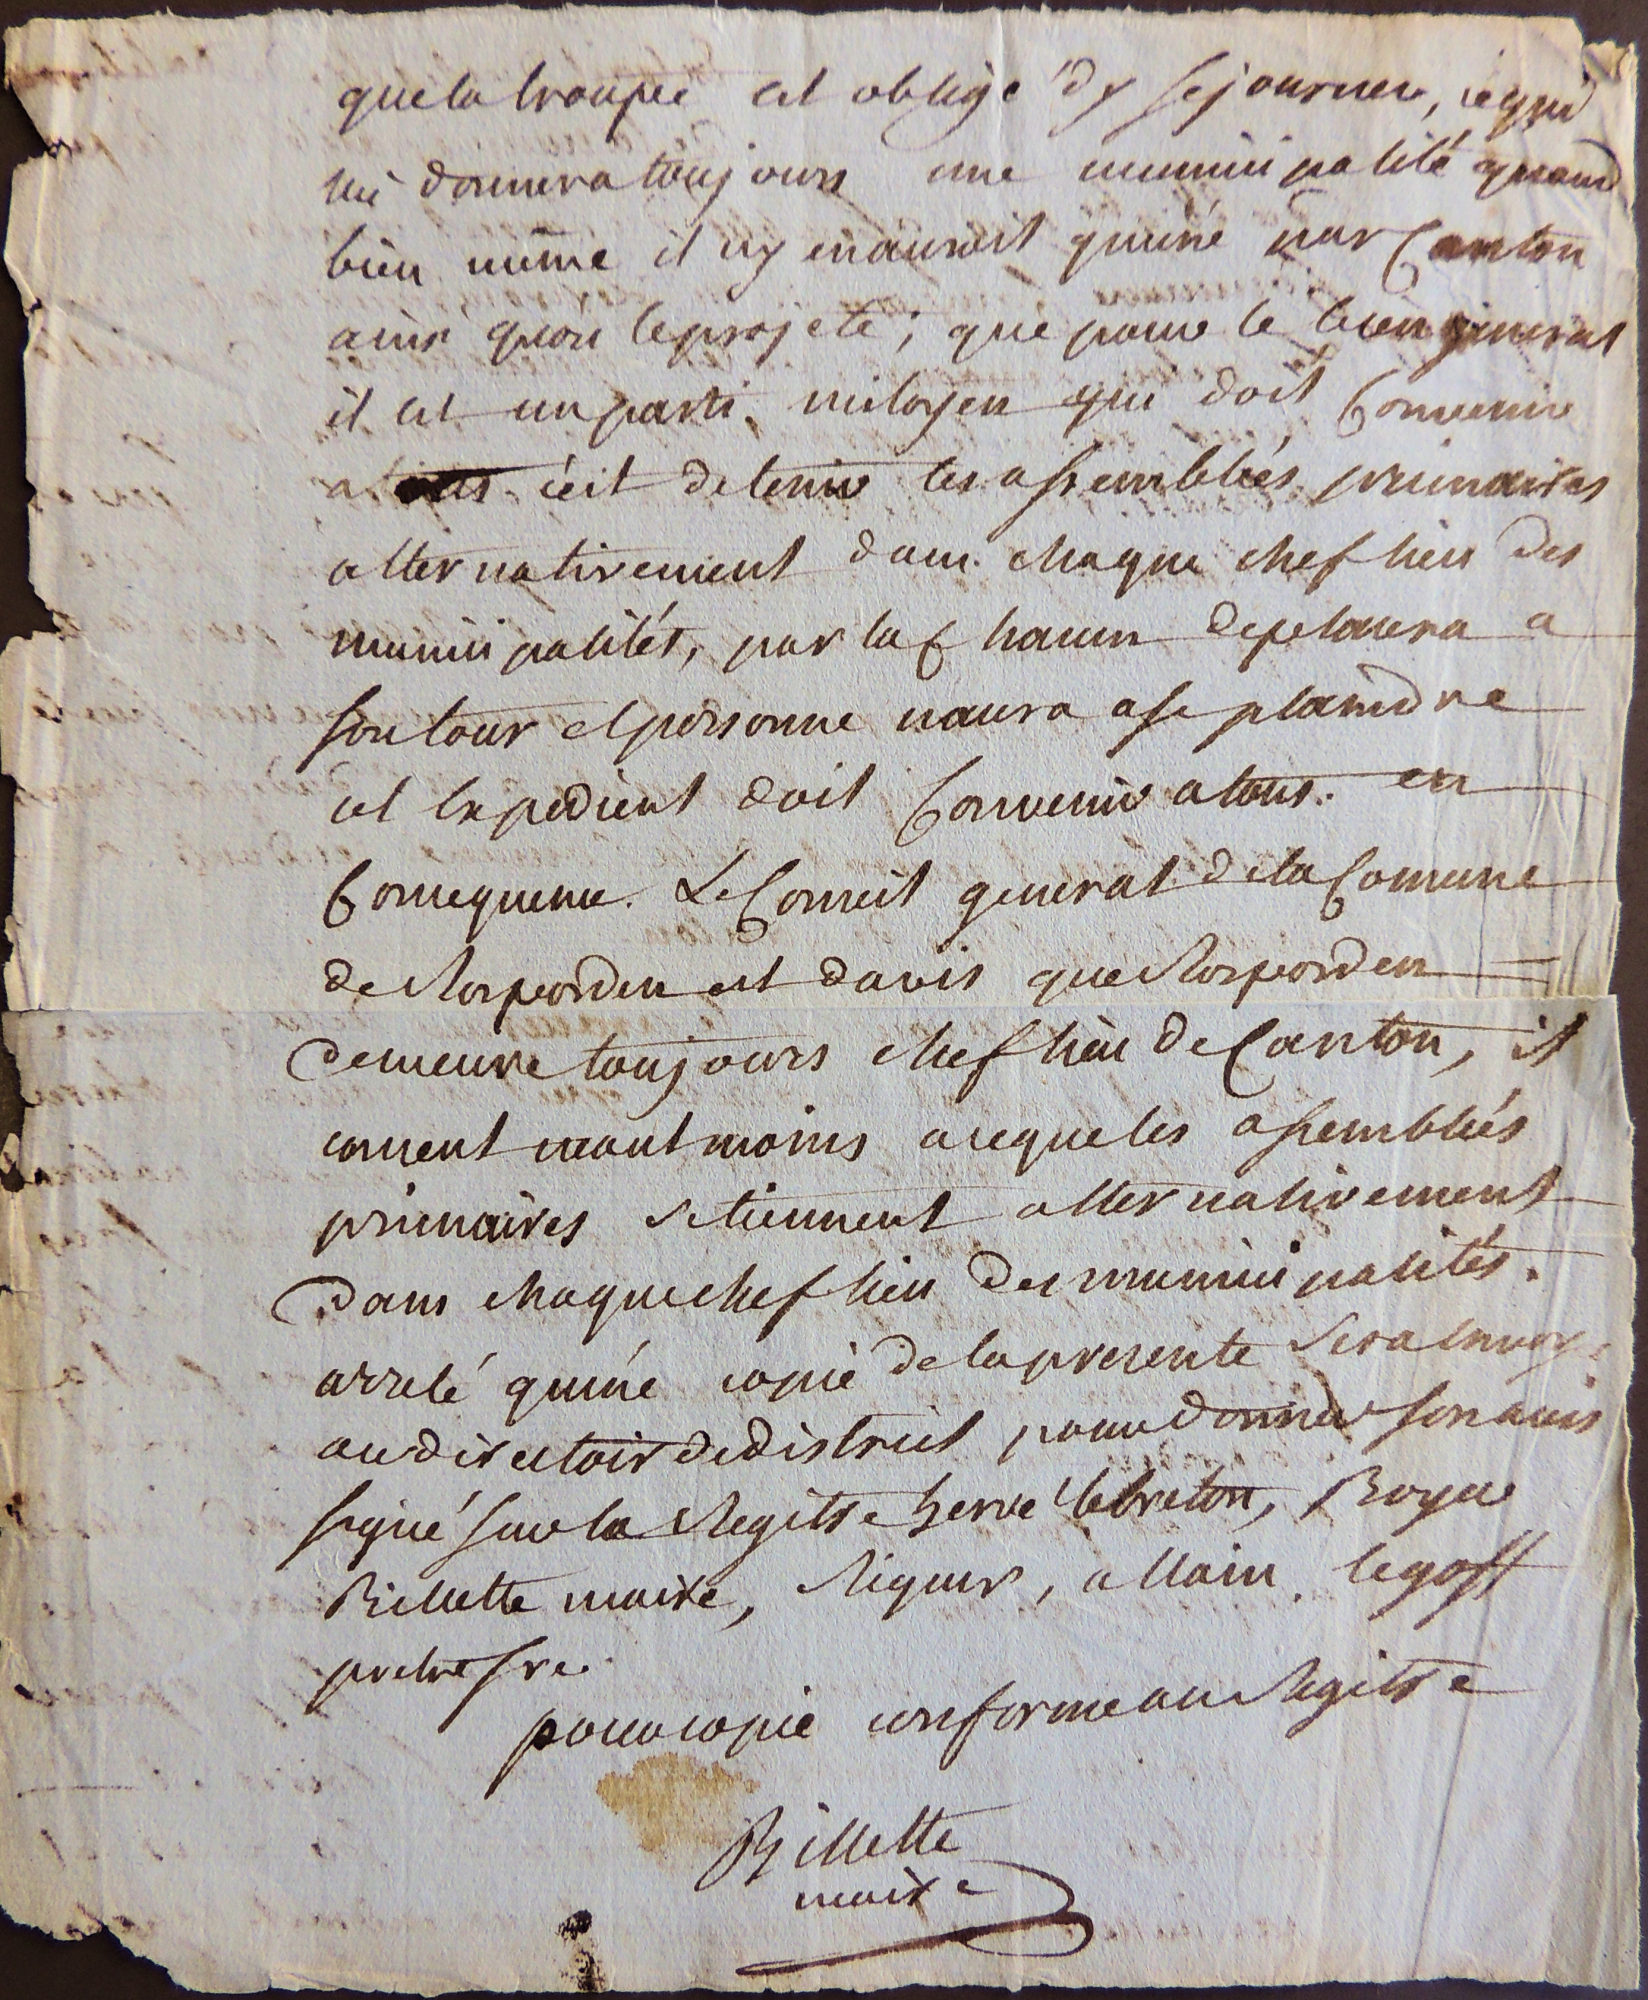 que la troupee est obligé d'y sejourner, ce qui
lui donnera toujours une municipalité quand
bien même il ny en auroit qu'une par Canton
ainsi qu'on le projete; que pour le bien general
il est un parti mitoyen qui doit Convenir
a tous c'est de tenir les assemblées primaires
alternativement dans chaque chef lieu des
municipalités, par la Chacun deplacera a
son tour et personne n'aura a se plaindre
cet Expedient doit Convenir a tous. en
Consequence. Le Conseil general de la Comune
de Rosporden est davis que Rosporden
demeure toujours chef lieu de Canton, il
consent neantmoins a ce que les assemblées
primaires se tiennent alternativement
dans chaque chef lieu des municipalités.
arreté qu'une copie de la presente sera Envoyé
au directoir de district pour donner son avis
signé sur le Registre herve lebreton, Boyer
Billette maire, Riquer, allain. legoff
pretre sre.
pour copie conforme au Registre
Billette
maire